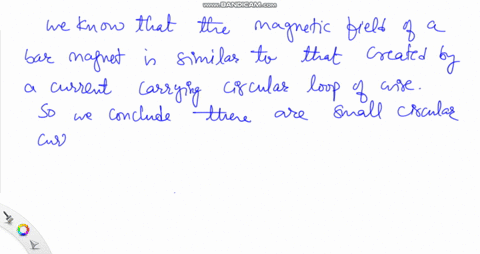 WWW.BANDICAM.COM
we know that the magnetic field of a
bar magnet is similar to that created by
a current carrying circular loop of wire.
So we conclude there are small circular
cur